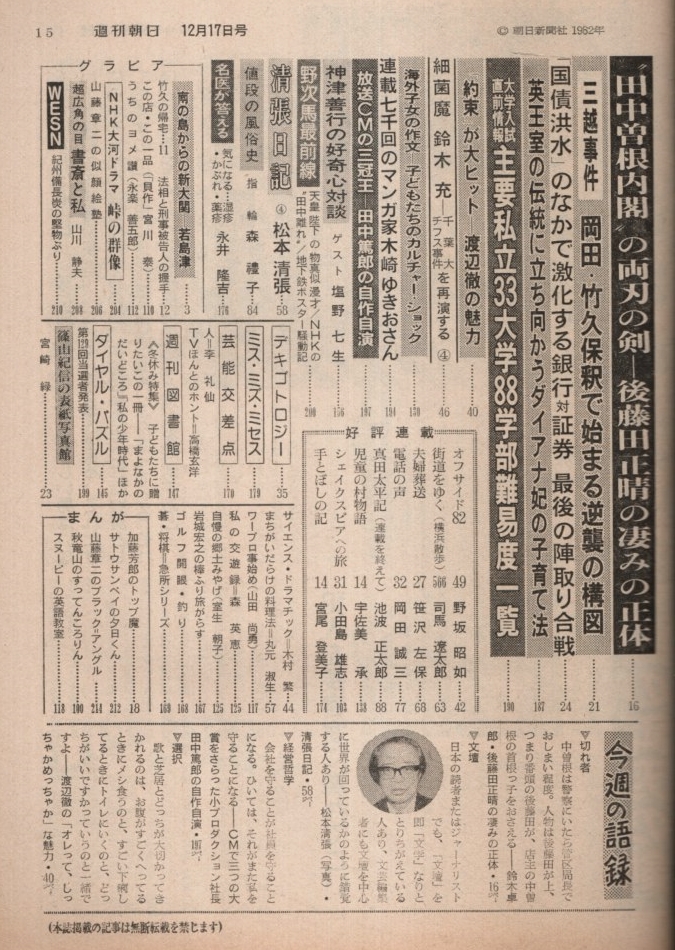 15
週刊朝日
12月17日号
© 朝日新聞社 1982年
“田中曽根内閣”の両刃の剣―後藤田正晴の凄みの正体
16
三越事件 岡田 竹久保釈で始まる逆襲の構図
21
「国債洪水」のなかで激化する銀行対証券 最後の陣取り合戦
24
英王室の伝統に立ち向かうダイアナ妃の子育て法
187
大学入試直前情報 主要私立33大学88学部難易度一覧
190
約束 が大ヒット 渡辺徹の魅力
40
細菌魔 鈴木 充―千葉大チフス事件を再演する④
46
海外子女の作文―子どもたちのカルチャー・ショック
170
連載七千回のマンガ家木崎ゆきおさん
194
放送CMの三冠王―田中篤郎の自作自演
197
神津善行の好奇心対談
ゲスト 塩野 七生
156
野次馬最前線
天皇陛下の物真似漫才/NHKの“田中離れ”/地下鉄ポスター騒動記
200
清張日記 ④ 松本 清張
58
値段の風俗史 指輪 森 禮子
84
名医が答える
気になる…湿疹・かぶれ・薬疹 永井 隆吉
176
グラビア
南の島からの新大関 若島津
3
竹久の帰宅…11 法相と刑事被告人の握手
12
この店・この一品(貝作)宮川 泰
110
うちのヨメ讃(永楽 善五郎)
112
NHK大河ドラマ 峠の群像
204
山藤章二の似顔絵塾
206
超広角の目 書斎と私 山川 静夫
208
WESN 紀州備長炭の堅物ぶり
210
デキゴトロジー
35
ミス・ミズ・ミセス
179
芸能交差点
170
人=李 礼仙
TVほんとのホント=高橋玄洋
週刊図書館
147
《冬休み特集》子どもたちに贈りたいこの一冊――「まよなかのだいどころ」「私の少年時代」ほか
ダイヤル・パズル
145
第129回当選者発表
199
篠山紀信の表紙写真館
宮崎 緑
23
好評連載
オフサイド82
49
野坂 昭如
42
街道をゆく(横浜散歩)
566
司馬 遼太郎
63
夫婦葬送
27
笹沢 左保
68
電話の声
32
岡田 誠三
77
真田太平記(連載を終えて)
池波 正太郎
88
児童の村物語
14
宇佐美 承
138
シェイクスピアへの旅
31
小田島 雄志
103
手とぼしの記
14
宮尾 登美子
174
サイエンス・ドラマチック=木村 繁
44
まちがいだらけの料理法=丸元 淑生
57
ワープロ事始め(山田 尚勇)
117
私の交遊録=森 英恵
125
自慢の郷土みやげ(室生 朝子)
125
岩城宏之の棒ふり旅がらす
167
ゴルフ開眼・釣り
168
碁・将棋=急所シリーズ
169
まんが
加藤芳郎のトップ魔
18
サトウサンペイの夕日くん
212
山藤章二のブラック=アングル
214
秋竜山のすってんころりん
100
スヌーピーの英語教室
118
今週の語録
▽切れ者
中曽根は警察にいたら管区局長でおしまい程度。人物は後藤田が上、つまり番頭の後藤田が、店主の中曽根の首根っ子をおさえる――鈴木卓郎・後藤田正晴の凄みの正体・16㌻
▽文壇
日本の読者またはジャーナリストでも、「文壇」を即「文学」なりととりちがえている人あり、文芸編集者にも文壇を中心に世界が回っているかのように錯覚する人あり――松本清張(写真)・清張日記・58㌻
▽経営哲学
会社を守ることが社員を守ることになる。ひいては、それがまた私を守ることになる――CMで三つの大賞をさらった小プロダクション社長 田中篤郎の自作自演・197㌻
▽選択
歌と芝居とどっちが大切かってきかれるのは、お腹がすごくへってるときにメシ食うのと、すごい下痢してるときにトイレにいくのと、どっちがいいですかっていうのと一緒ですよ――渡辺徹の「オレって、しっちゃかめっちゃか」な魅力・40㌻
(本誌掲載の記事は無断転載を禁じます)